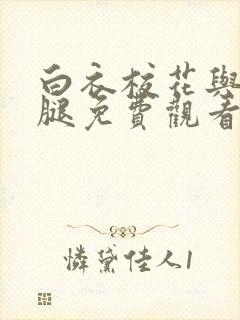 白衣校花與
腿免費觀看
憐黛佳人1